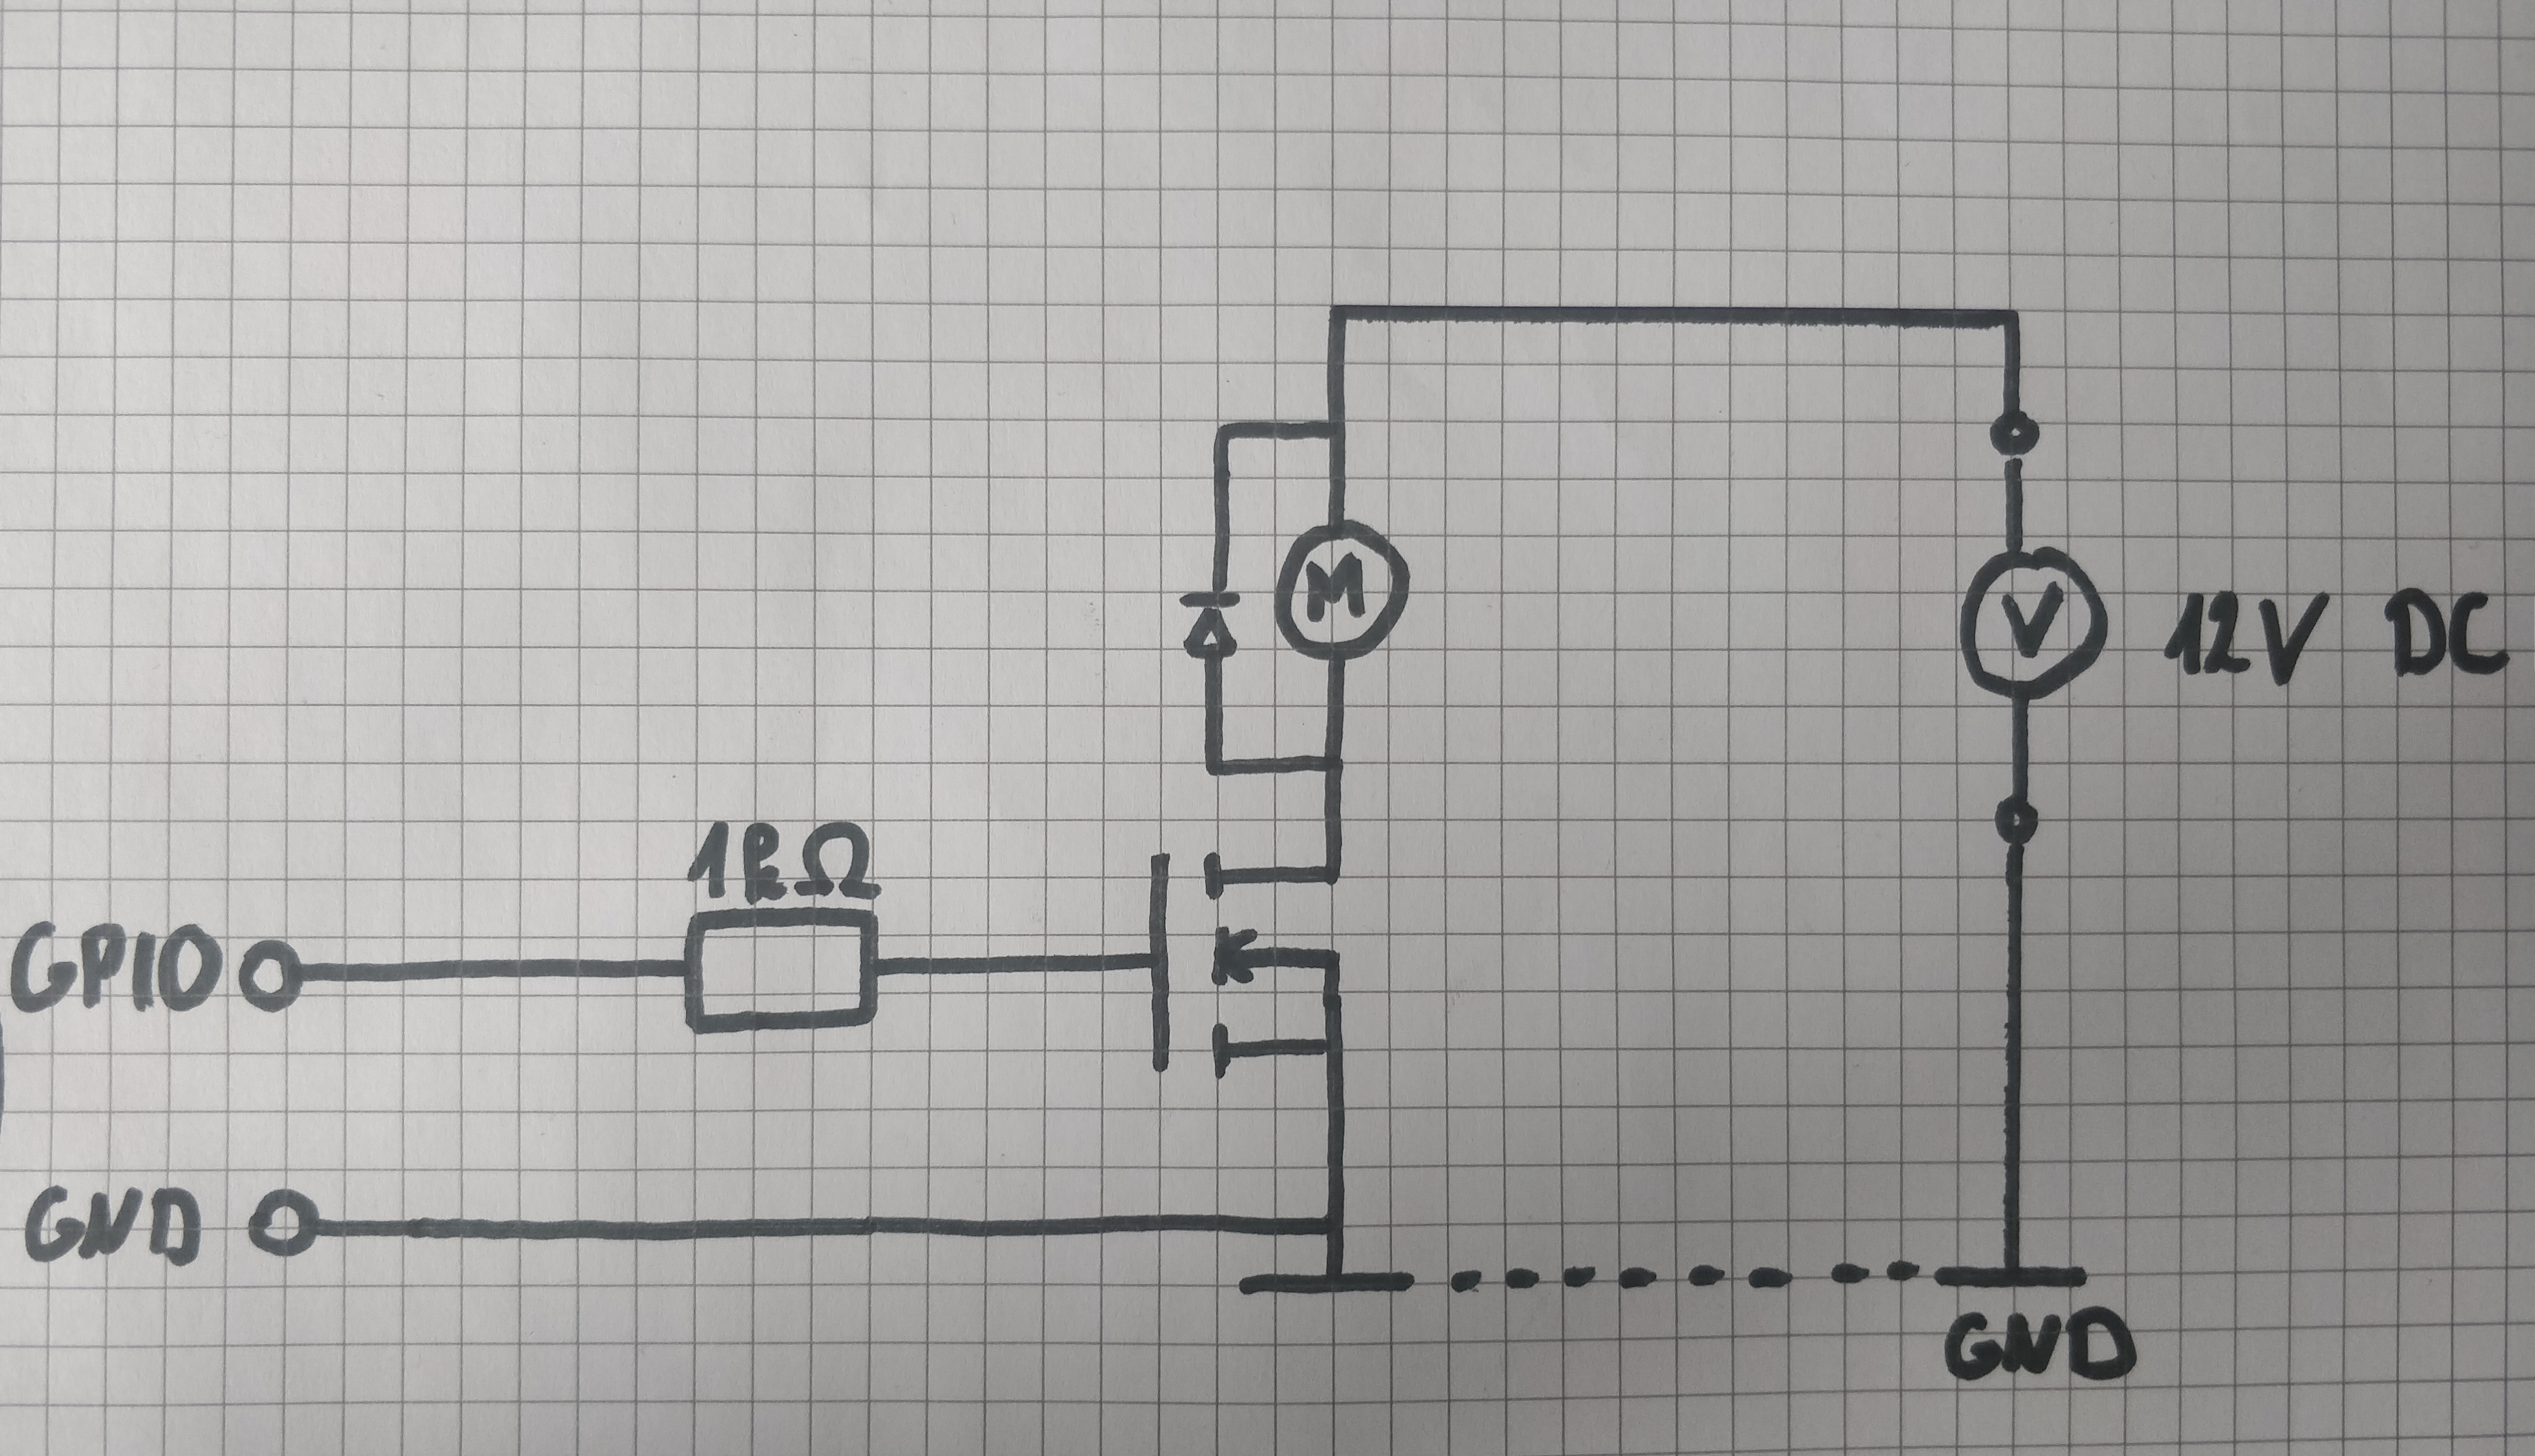 M
V
12V DC
1kΩ
GPIO
GND
GND